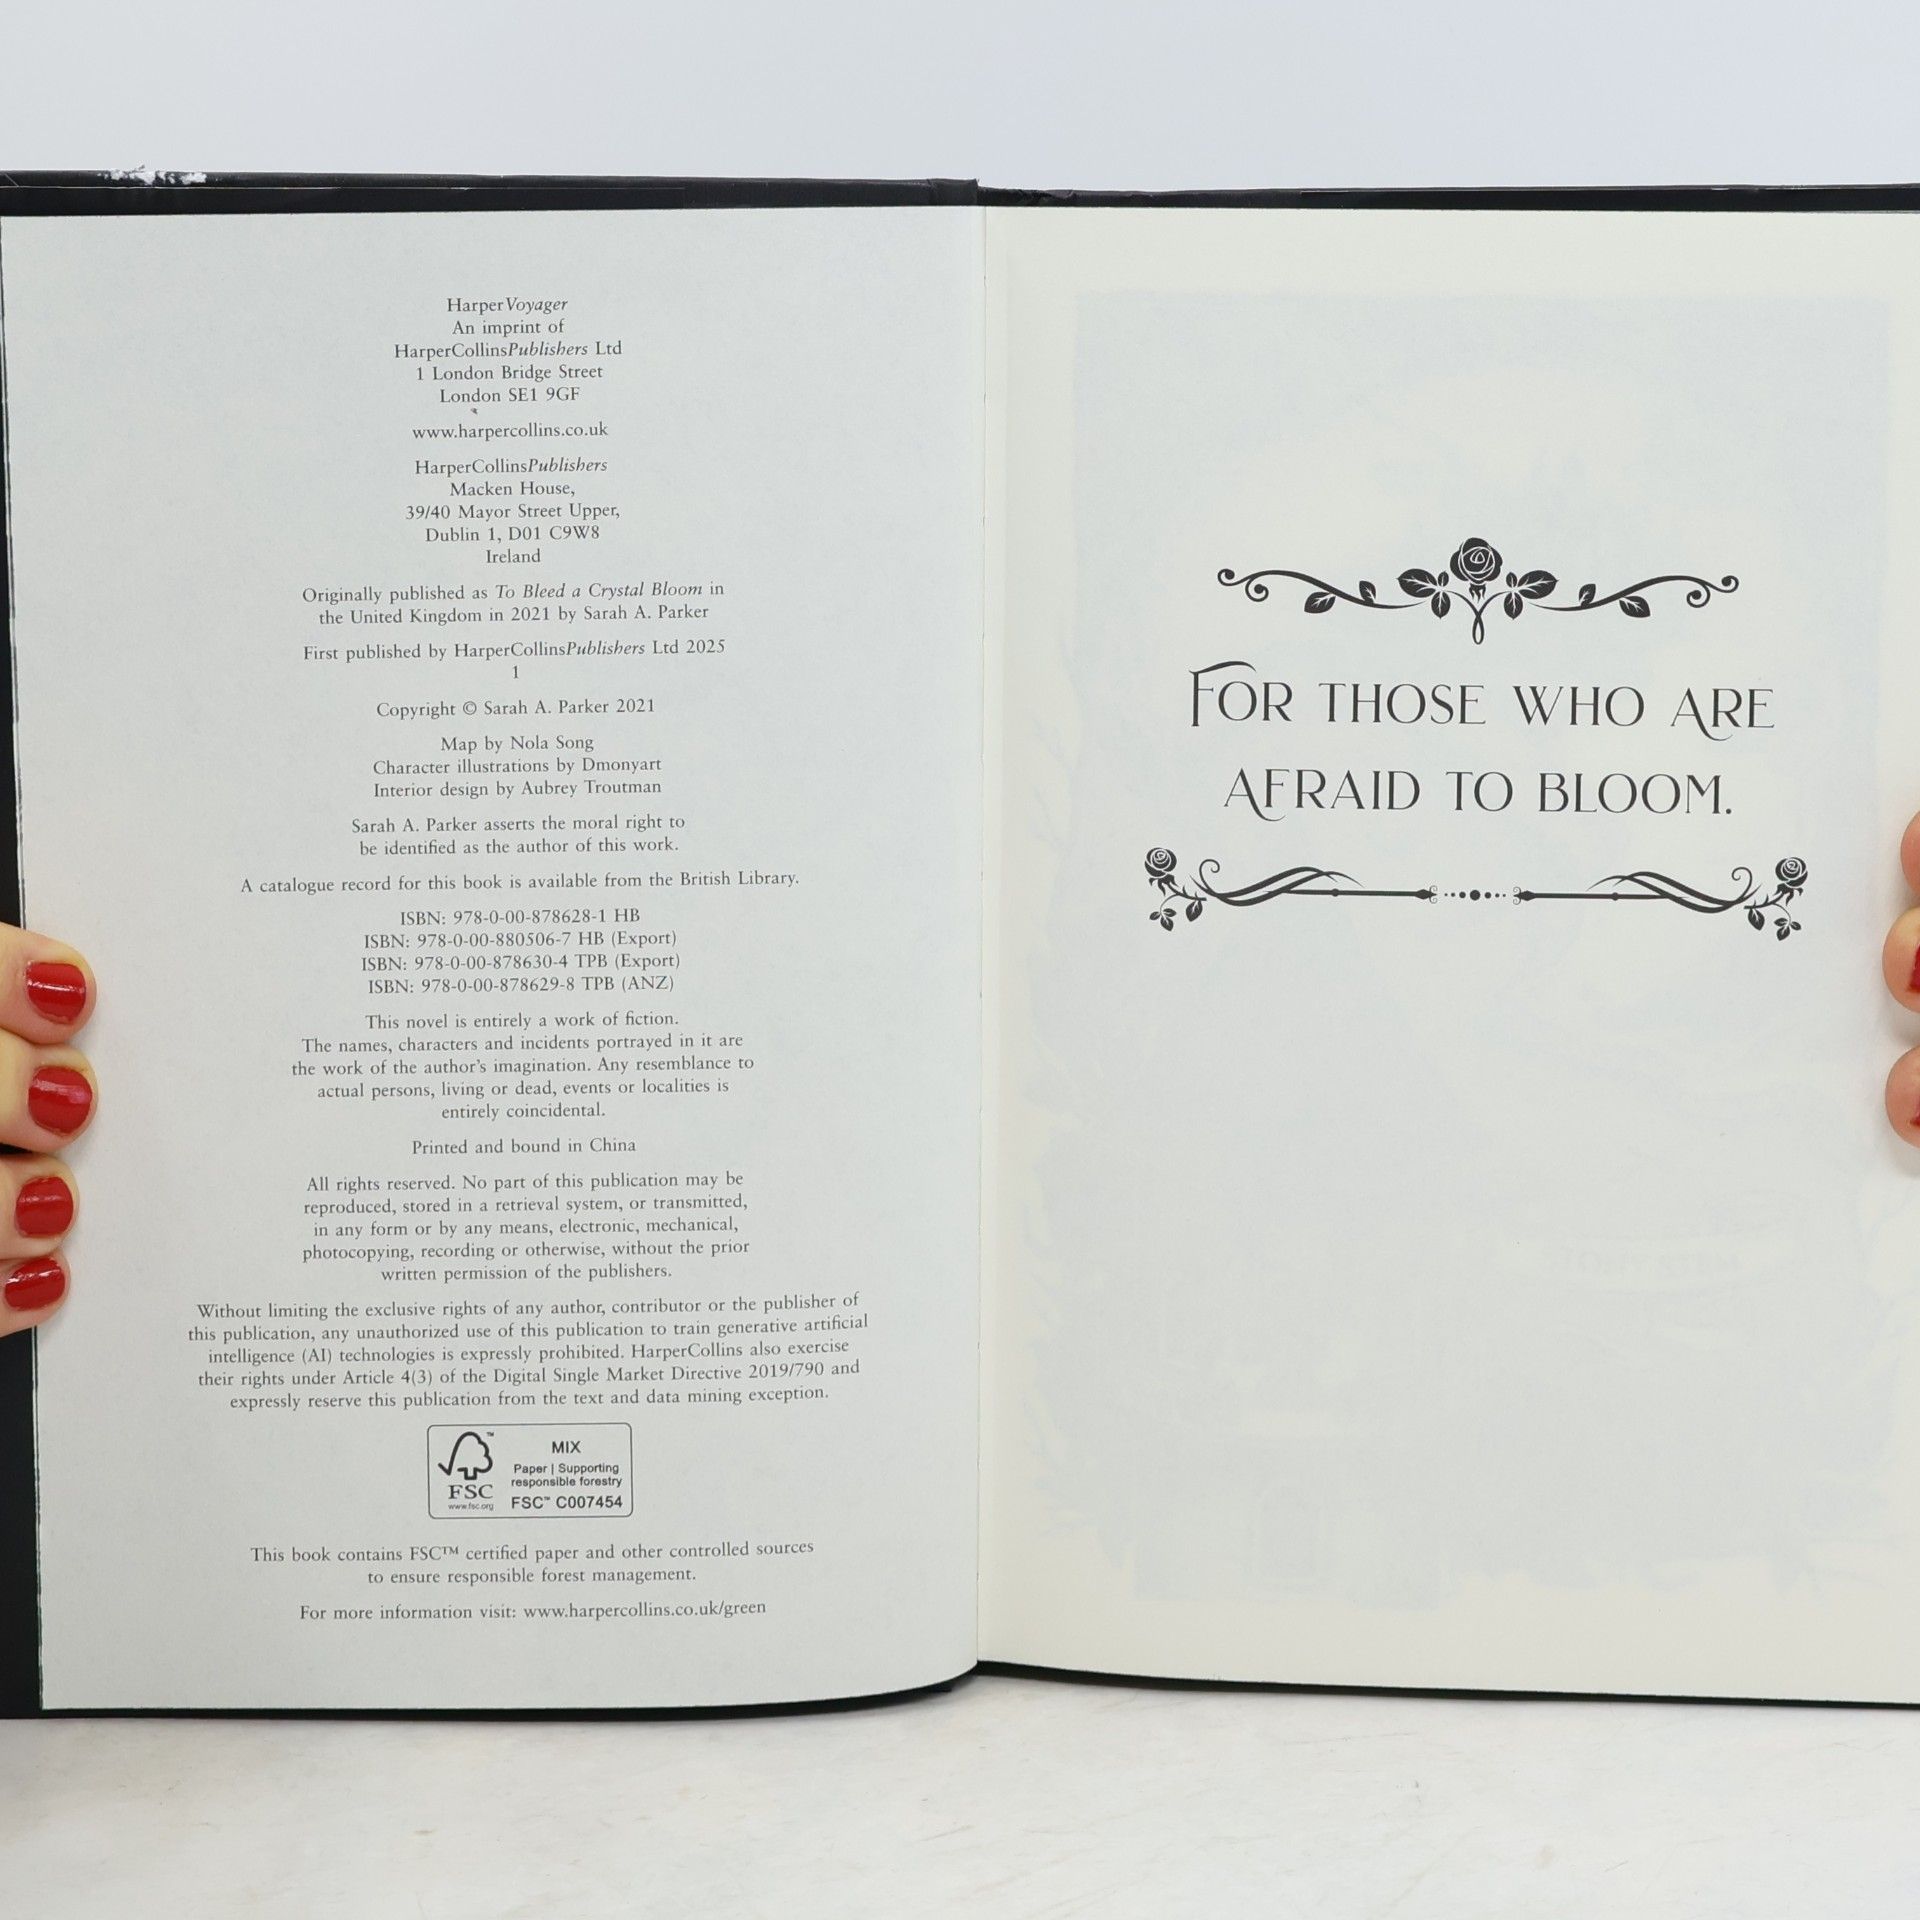 HarperVoyager
An imprint of
HarperCollinsPublishers Ltd
1 London Bridge Street
London SE1 9GF
www.harpercollins.co.uk
HarperCollinsPublishers
Macken House,
39/40 Mayor Street Upper,
Dublin 1, D01 C9W8
Ireland
Originally published as To Bleed a Crystal Bloom in
the United Kingdom in 2021 by Sarah A. Parker
First published by HarperCollinsPublishers Ltd 2025
1
Copyright © Sarah A. Parker 2021
Map by Nola Song
Character illustrations by Dmonyart
Interior design by Aubrey Troutman
Sarah A. Parker asserts the moral right to
be identified as the author of this work.
A catalogue record for this book is available from the British Library.
ISBN: 978-0-00-878628-1 HB
ISBN: 978-0-00-880506-7 HB (Export)
ISBN: 978-0-00-878630-4 TPB (Export)
ISBN: 978-0-00-878629-8 TPB (ANZ)
This novel is entirely a work of fiction.
The names, characters and incidents portrayed in it are
the work of the author's imagination. Any resemblance to
actual persons, living or dead, events or localities is
entirely coincidental.
Printed and bound in China
All rights reserved. No part of this publication may be
reproduced, stored in a retrieval system, or transmitted,
in any form or by any means, electronic, mechanical,
photocopying, recording or otherwise, without the prior
written permission of the publishers.
Without limiting the exclusive rights of any author, contributor or the publisher of
this publication, any unauthorized use of this publication to train generative artificial
intelligence (AI) technologies is expressly prohibited. HarperCollins also exercise
their rights under Article 4(3) of the Digital Single Market Directive 2019/790 and
expressly reserve this publication from the text and data mining exception.
FSC
www.fsc.org
MIX
Paper | Supporting
responsible forestry
FSC™ C007454
This book contains FSC™ certified paper and other controlled sources
to ensure responsible forest management.
For more information visit: www.harpercollins.co.uk/green
FOR THOSE WHO ARE
AFRAID TO BLOOM.